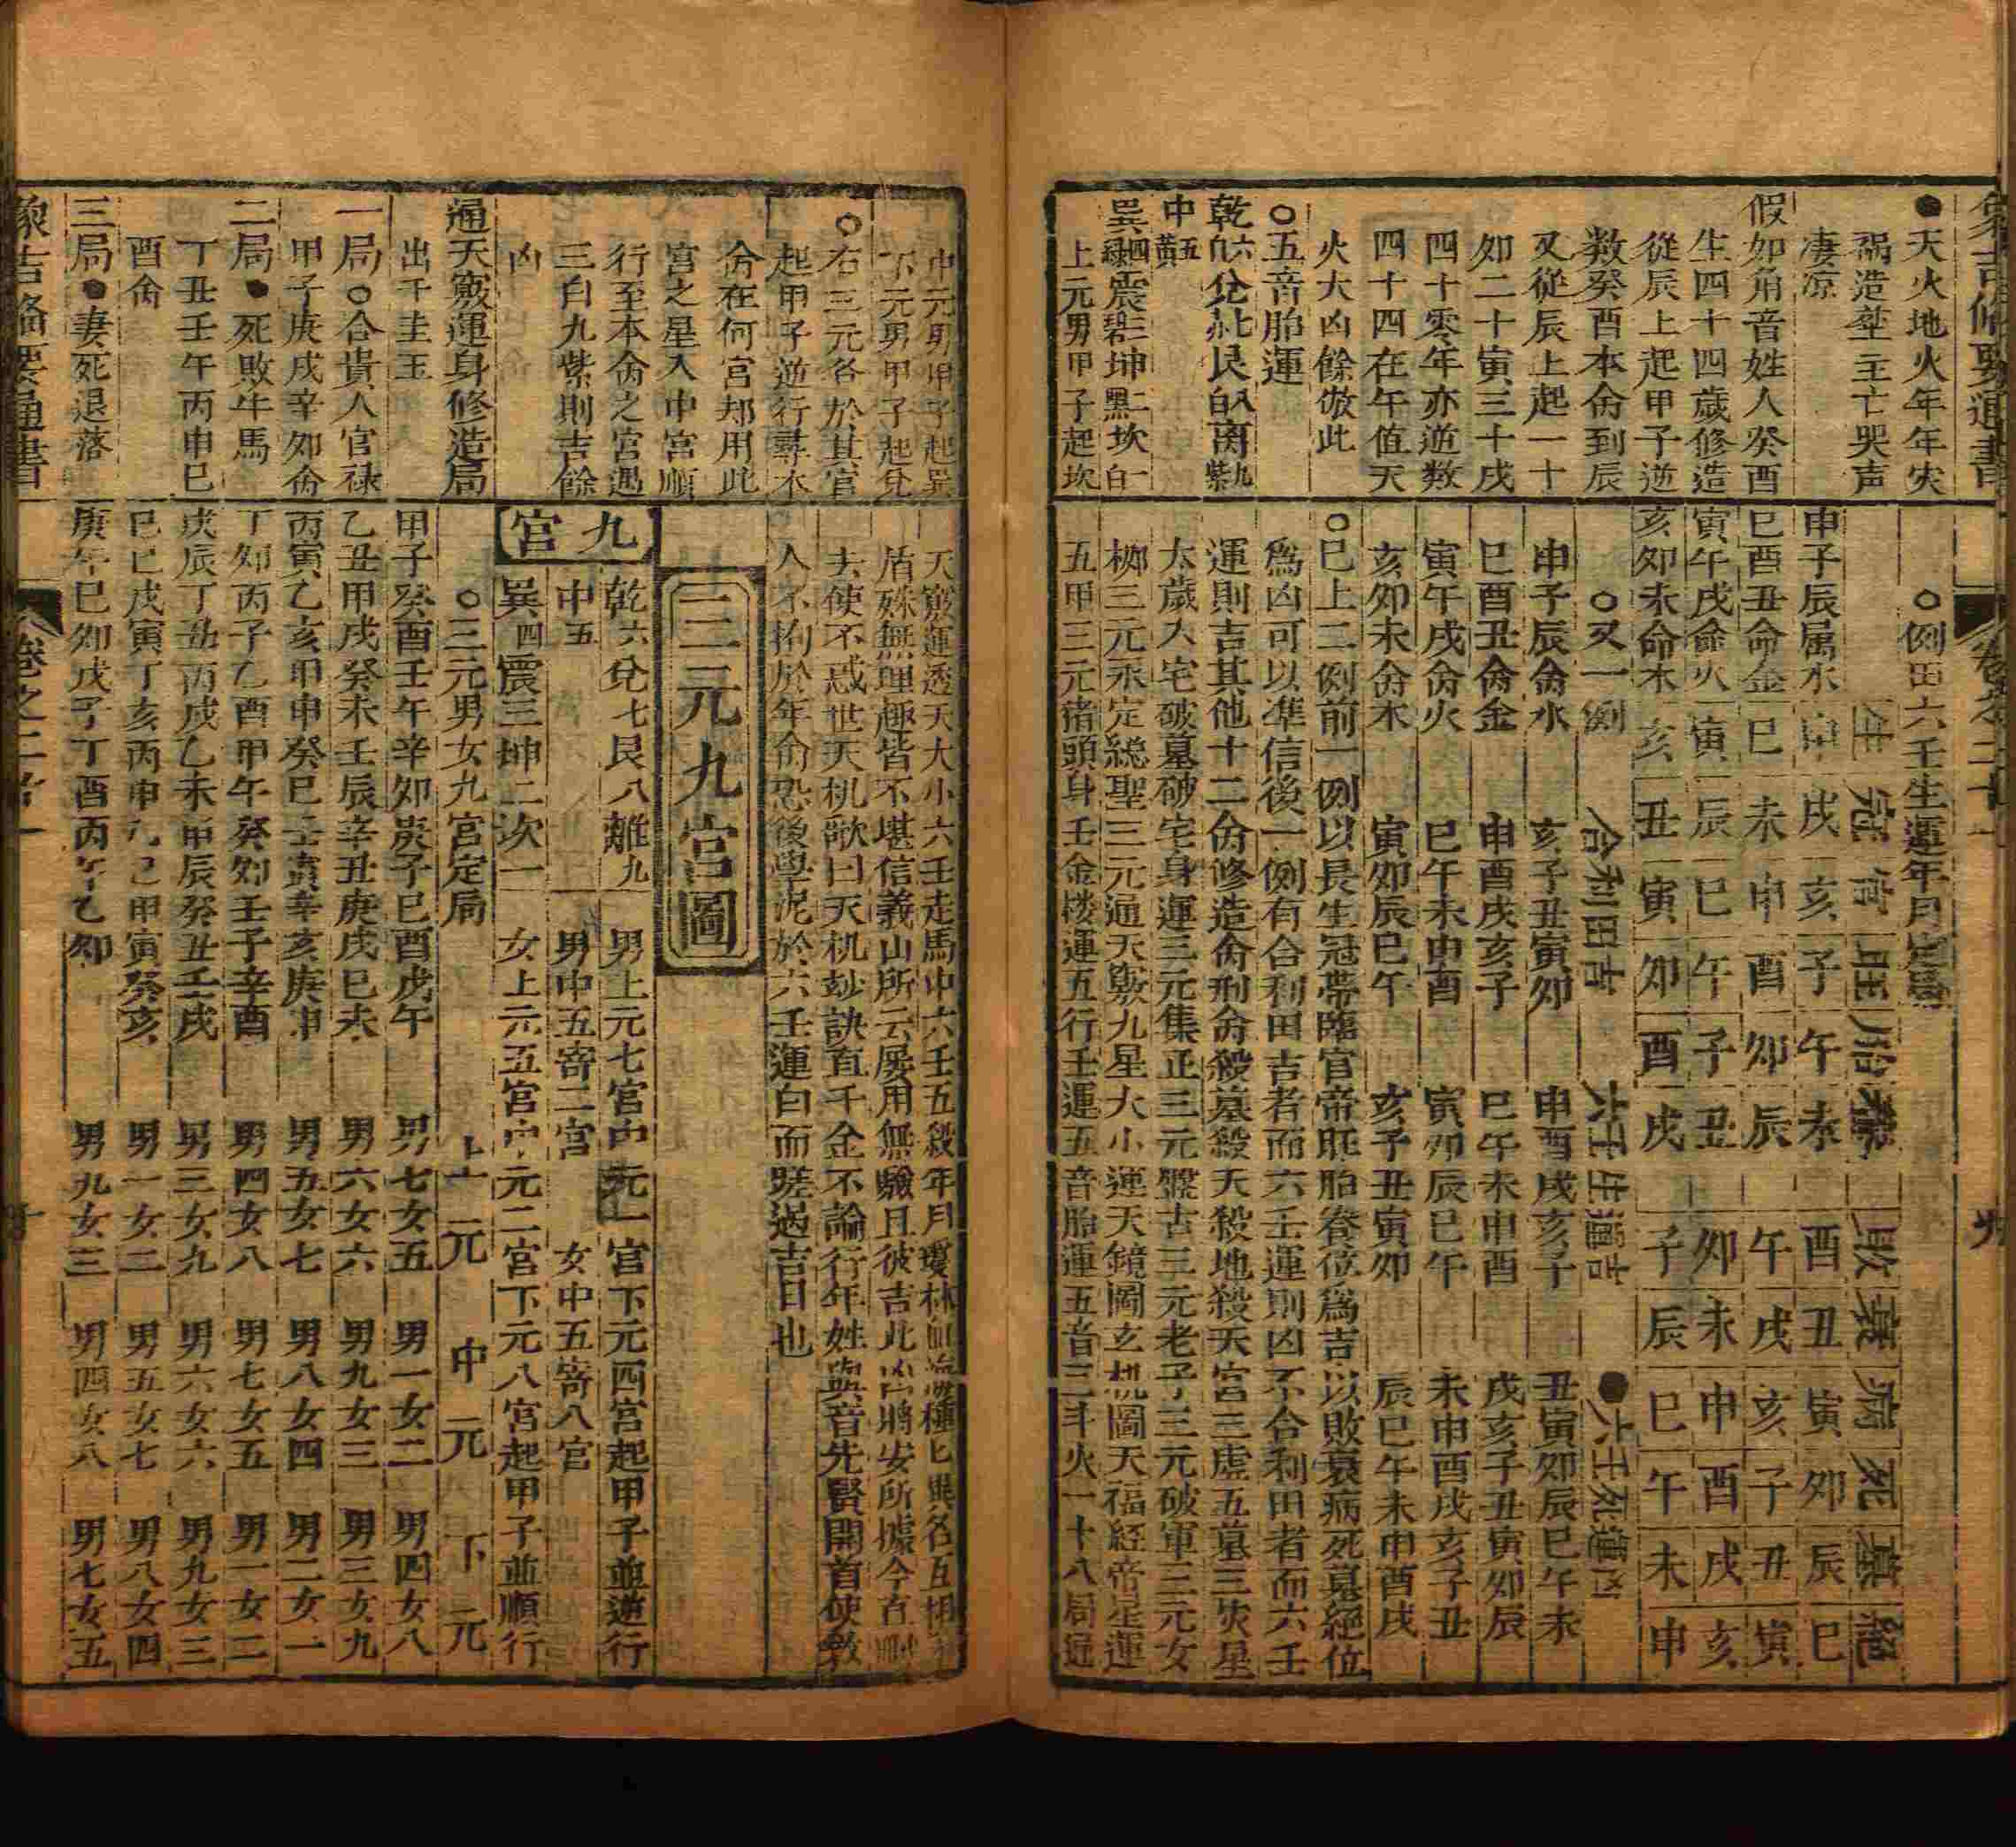 ●天火地火年年灾
禍造塟主亡哭声
凄凉
假如角音姓人癸酉
生四十四歲修造
從辰上起甲子逆
数癸酉本命到辰
又從辰上起一十
卯二十寅三十戌
四十零年亦逆数
四十四在午值天
火大凶餘倣此
○五音胎運
乾六白兊七赤艮八白离九紫
中五黄
巽四緑震三碧坤二黑坎一白
上元男甲子起坎
○例田六壬生運年月定局
生 冠 官 旺 胎 養 敗 衰 病 死 墓 絕
申子辰属水 申 戌 亥 子 午 未 酉 丑 寅 卯 辰 巳
巳酉丑命金 巳 未 申 酉 卯 辰 午 戌 亥 子 丑 寅
寅午戌命火 寅 辰 巳 午 子 丑 卯 未 申 酉 戌 亥
亥卯未命木 亥 丑 寅 卯 酉 戌 子 辰 巳 午 未 申
○又一例 合利田吉 六壬生運吉 ●六壬死運凶
申子辰命水 亥子丑寅卯 申酉戌亥子 丑寅卯辰巳午未
巳酉丑命金 申酉戌亥子 巳午未申酉 戌亥子丑寅卯辰
寅午戌命火 巳午未申酉 寅卯辰巳午 未申酉戌亥子丑
亥卯未命木 寅卯辰巳午 亥子丑寅卯 辰巳午未申酉戌
○巳上二例前一例以長生冠帶臨官帝旺胎養位爲吉以敗衰病死墓絕位
爲凶可以準信後一例有合利田吉者而六壬運則凶不合利田者而六壬
運則吉其他十二命修造命刑命殺墓殺天殺地殺天宮三虛五墓三灾星
太歲入宅破墓破宅身運三元集正三元盤古三元老子三元破軍三元女
栁三元永定総聖三元通天竅九星大小運天鏡圖玄机圖天福経帝星運
五甲三元猪頭身壬金楼運五行壬運五音胎運五音三斗火一十八局通
中元男甲子起巽
下元男甲子起兊
○右三元各於其宮
起甲子逆行尋本
命在何宮却用此
宮之星入中宮順
行至本命之宮遇
三白九紫則吉餘
凶
通天竅運身修造局
出千圭玉
一局○合貴人官禄
甲子庚戌辛卯命
二局●死敗牛馬
丁丑壬午丙申巳
酉命
三局●妻死退落
天竅運透天大小六壬走馬中六壬五殺年月瓊林
盾殊無理趣皆不堪信義山所云屡用無驗且彼吉此凶將安所據今百刪
去使不惑世天机歌曰天机玅訣直千金不論行年姓與音先賢開首使教
人不拘於年命恐後學泥於六壬運白而蹉過吉日也
三元九宮圖
九宮
乾六兊七艮八離九 男上元七宮中元一宮下元四宮起甲子並逆行
中五 男中五寄二宮 女中五寄八宮
巽四震三坤二次一 女上元五宮中元二宮下元八宮起甲子並順行
○三元男女九宮定局 上元 中元 下元
甲子癸酉壬午辛卯庚子巳酉戊午 男七女五 男一女二 男四女八
乙丑甲戌癸未壬辰辛丑庚戌巳未 男六女六 男九女三 男三女九
丙寅乙亥甲申癸巳壬寅辛亥庚申 男五女七 男八女四 男二女一
丁卯丙子乙酉甲午癸卯壬子辛酉 男四女八 男七女五 男一女二
戊辰丁丑丙戌乙未甲辰癸丑壬戌 男三女九 男六女六 男九女三
巳巳戊寅丁亥丙申乙巳甲寅癸亥 男一女二 男五女七 男八女四
庚午巳卯戊子丁酉丙午乙卯 男九女三 男四女八 男七女五
象吉俻要通書